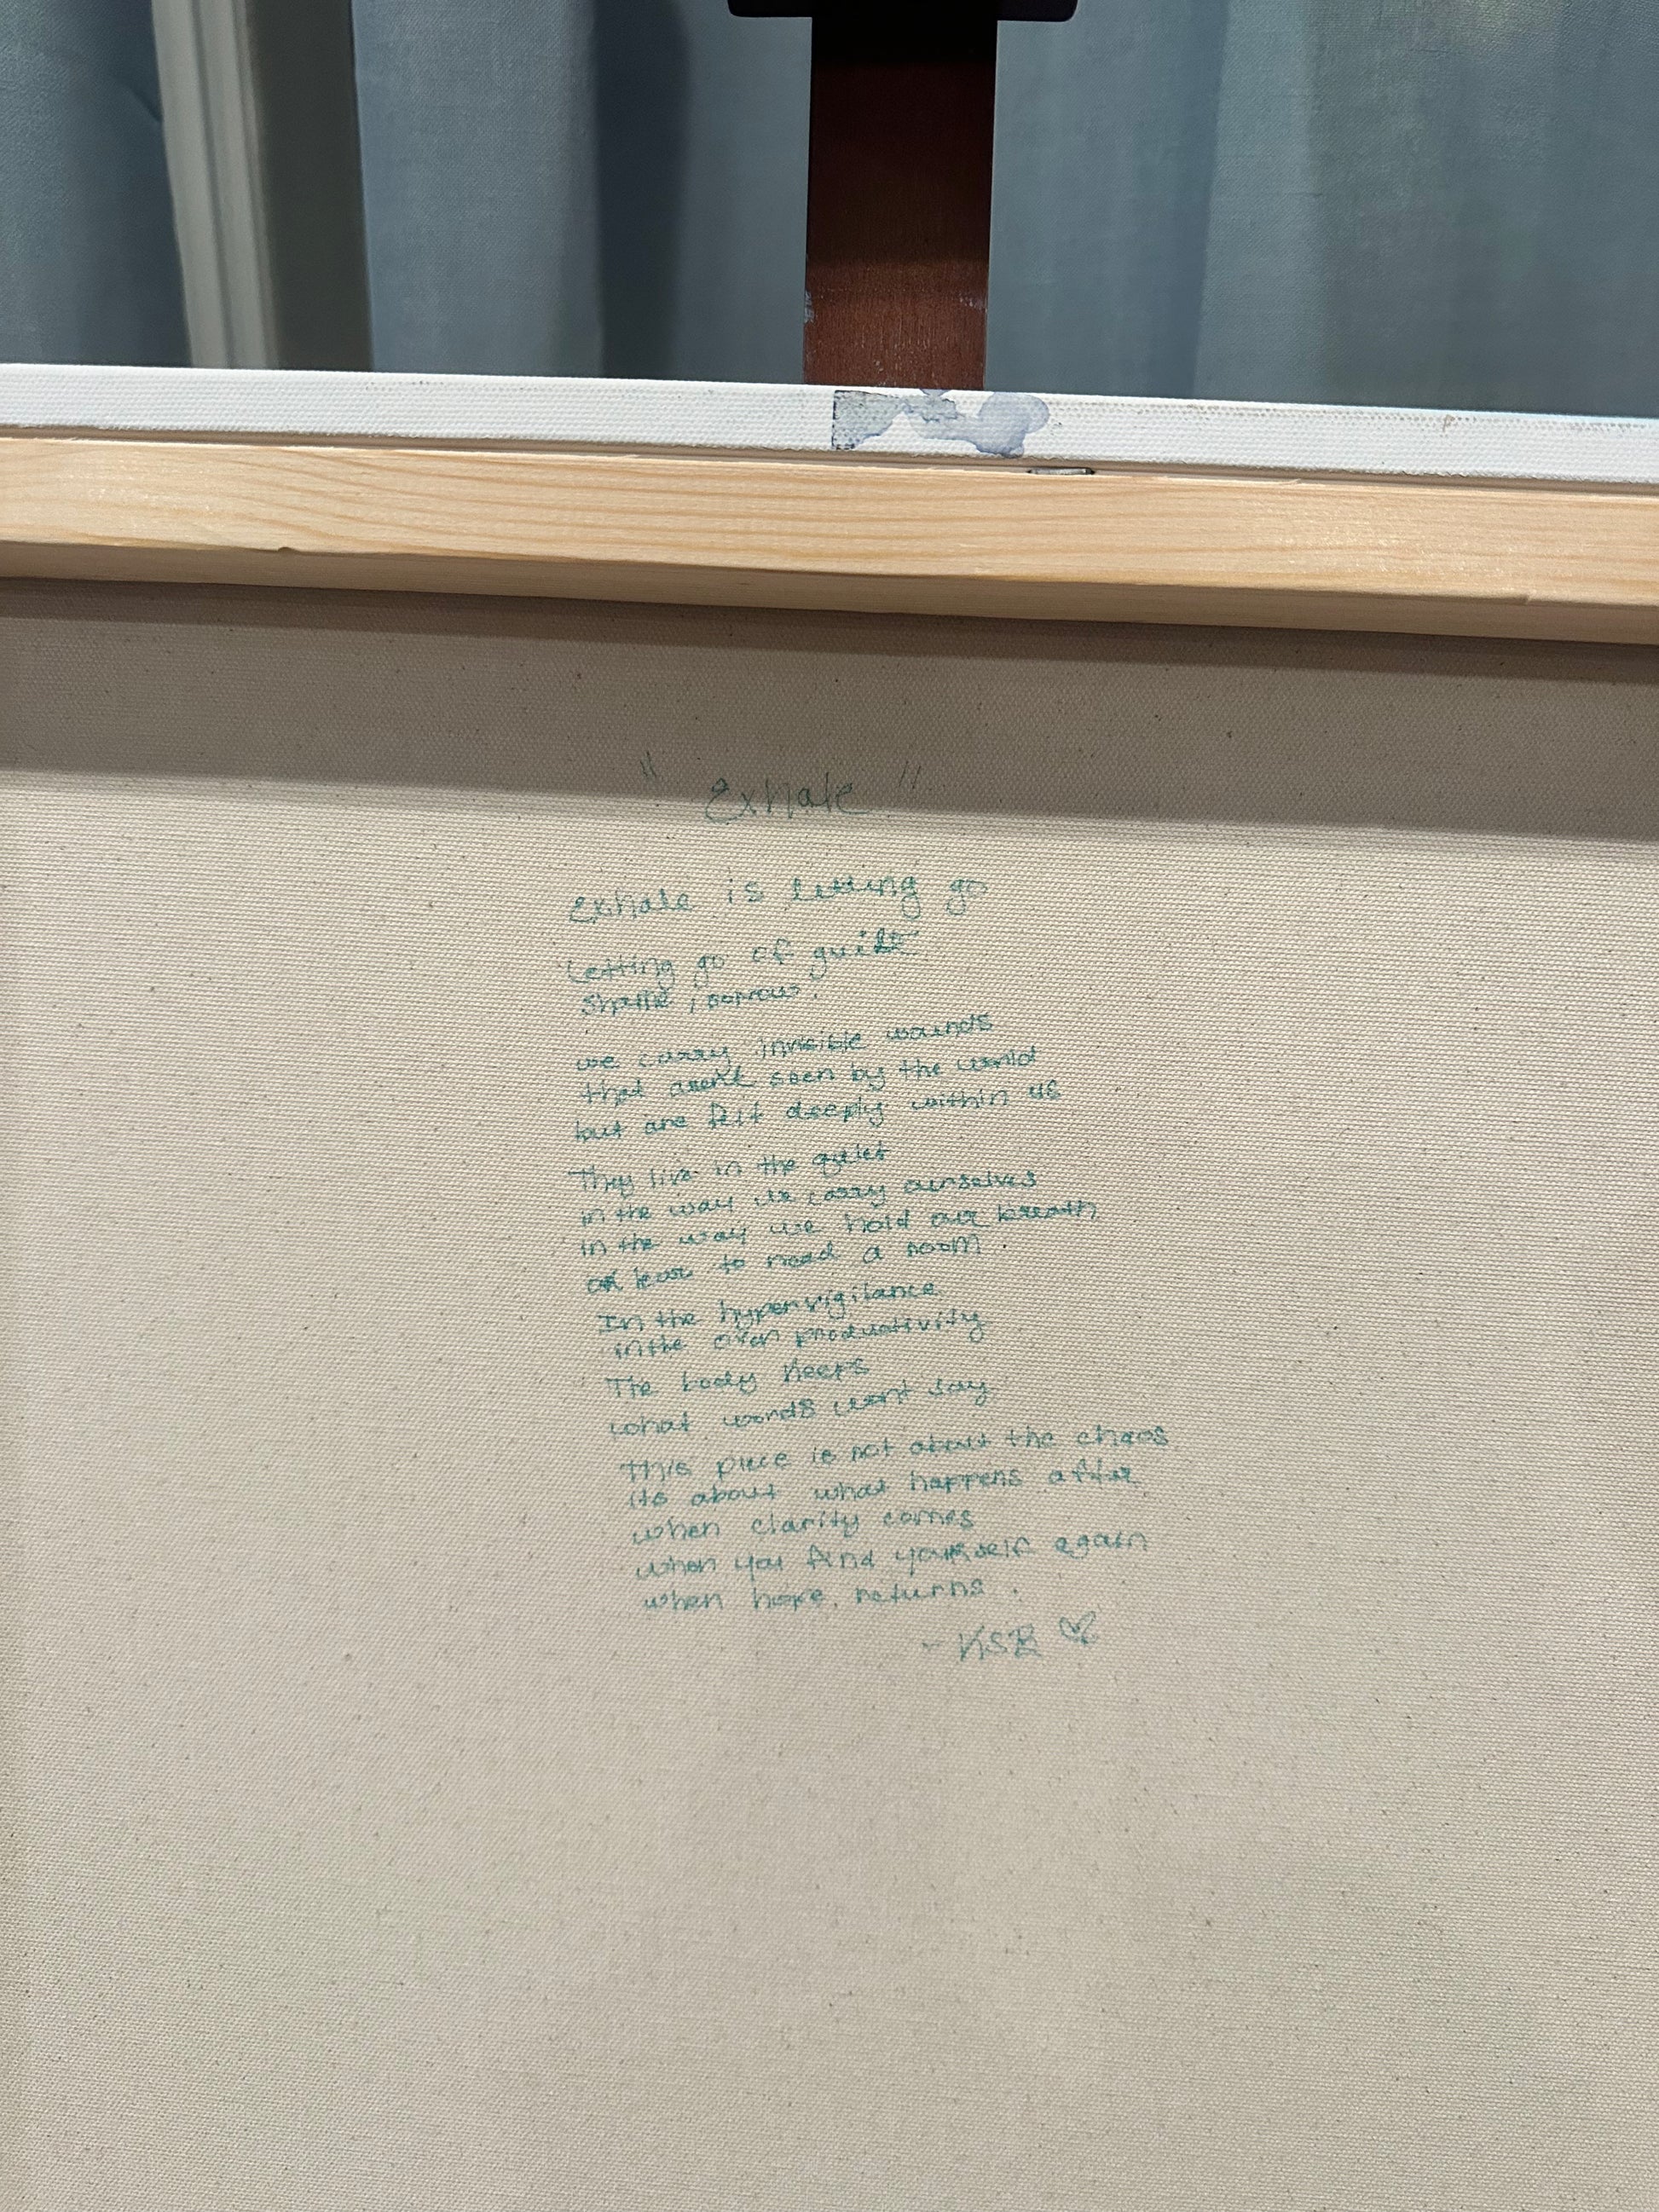 "Exhale"
Exhale is letting go
Letting go of guilt
shame, sorrow.
we carry invisible wounds
that aren't seen by the world
but are felt deeply within us
They live in the quiet
in the way we carry ourselves
in the way we hold our breath
or learn to read a room.
In the hypervigilance
in the over productivity
The body keeps
what words wont say
This piece is not about the chaos
its about what happens after
when clarity comes
when you find yourself again
when hope returns.
- KSB